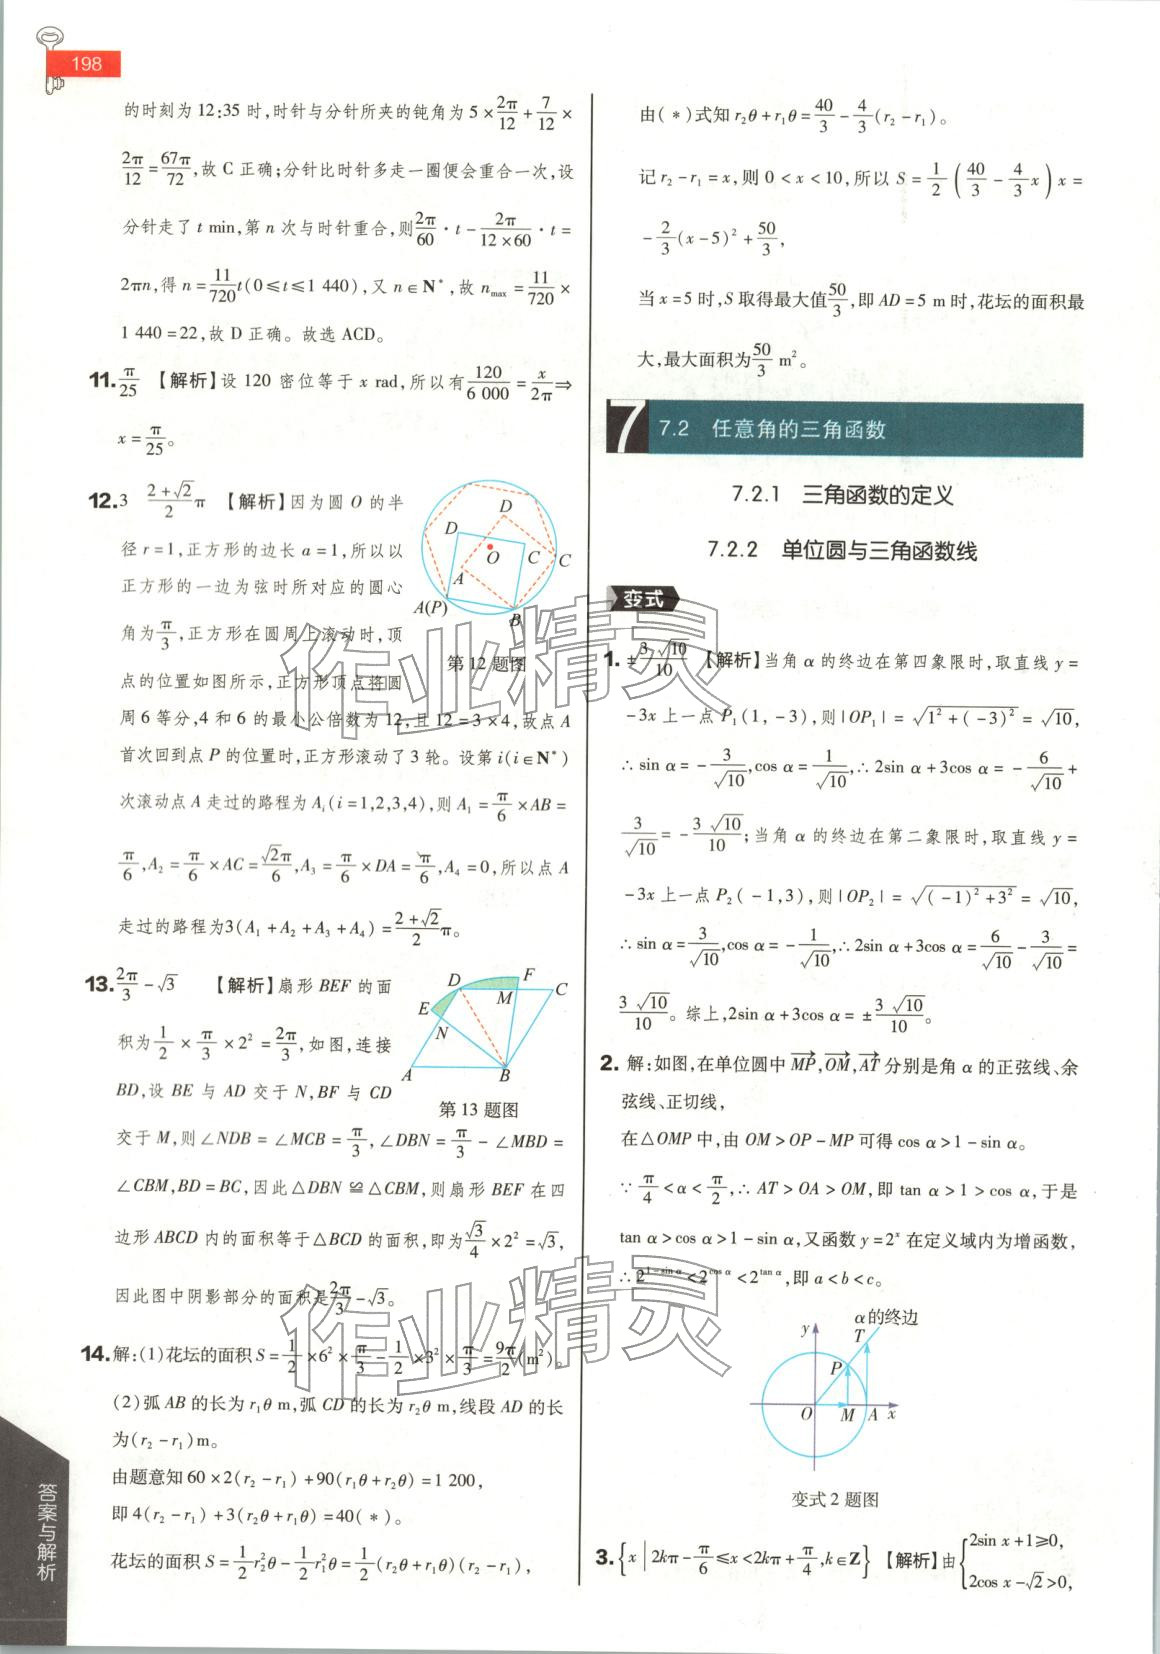 198
的时刻为 12:35 时,时针与分针所夹的钝角为 5×2π/12+7/12×
2π/12=67π/72,故 C 正确;分针比时针多走一圈便会重合一次,设
分针走了 t min,第 n 次与时针重合,则2π/60·t-2π/(12×60)·t=
2πn,得 n=11/720 t(0≤t≤1 440),又 n∈N*,故 n_max=11/720×
1 440=22,故 D 正确。故选 ACD。
11. π/25 【解析】设 120 密位等于 x rad,所以有120/6 000=x/2π⇒
x=π/25。
12. 3 (2+√2)/2 π 【解析】因为圆 O 的半
径 r=1,正方形的边长 a=1,所以以
正方形的一边为弦时所对应的圆心
角为π/3,正方形在圆周上滚动时,顶
点的位置如图所示,正方形顶点将圆
D
D
O
C
C
A
A(P)
B
第 12 题图
周 6 等分,4 和 6 的最小公倍数为 12,且 12=3×4,故点 A
首次回到点 P 的位置时,正方形滚动了 3 轮。设第 i(i∈N*)
次滚动点 A 走过的路程为 A_i(i=1,2,3,4),则 A₁=π/6×AB=
π/6,A₂=π/6×AC=√2π/6,A₃=π/6×DA=π/6,A₄=0,所以点 A
走过的路程为3(A₁+A₂+A₃+A₄)=(2+√2)/2 π。
13. 2π/3-√3 【解析】扇形 BEF 的面
积为1/2×π/3×2²=2π/3,如图,连接
BD,设 BE 与 AD 交于 N,BF 与 CD
D
F
C
E
M
N
A
B
第 13 题图
交于 M,则∠NDB=∠MCB=π/3,∠DBN=π/3-∠MBD=
∠CBM,BD=BC,因此△DBN≌△CBM,则扇形 BEF 在四
边形 ABCD 内的面积等于△BCD 的面积,即为√3/4×2²=√3,
因此图中阴影部分的面积是2π/3-√3。
14. 解:(1)花坛的面积 S=1/2×6²×π/3-1/2×3²×π/3=9π/2(m²)。
(2)弧 AB 的长为 r₁θ m,弧 CD 的长为 r₂θ m,线段 AD 的长
为(r₂-r₁)m。
由题意知 60×2(r₂-r₁)+90(r₁θ+r₂θ)=1 200,
即 4(r₂-r₁)+3(r₂θ+r₁θ)=40(*)。
花坛的面积 S=1/2 r₂²θ-1/2 r₁²θ=1/2(r₂θ+r₁θ)(r₂-r₁),
由(*)式知 r₂θ+r₁θ=40/3-4/3(r₂-r₁)。
记 r₂-r₁=x,则 0<x<10,所以 S=1/2(40/3-4/3 x)x=
-2/3(x-5)²+50/3,
当 x=5 时,S 取得最大值50/3,即 AD=5 m 时,花坛的面积最
大,最大面积为50/3 m²。
7 7.2 任意角的三角函数
7.2.1 三角函数的定义
7.2.2 单位圆与三角函数线
变式
1. ±3√10/10 【解析】当角 α 的终边在第四象限时,取直线 y=
-3x 上一点 P₁(1,-3),则|OP₁|=√(1²+(-3)²)=√10,
∴ sin α=-3/√10,cos α=1/√10,∴ 2sin α+3cos α=-6/√10+
3/√10=-3√10/10;当角 α 的终边在第二象限时,取直线 y=
-3x 上一点 P₂(-1,3),则|OP₂|=√((-1)²+3²)=√10,
∴ sin α=3/√10,cos α=-1/√10,∴ 2sin α+3cos α=6/√10-3/√10=
3√10/10。综上,2sin α+3cos α=±3√10/10。
2. 解:如图,在单位圆中MP→,OM→,AT→分别是角 α 的正弦线、余
弦线、正切线,
在△OMP 中,由 OM>OP-MP 可得 cos α>1-sin α。
∵ π/4<α<π/2,∴ AT>OA>OM,即 tan α>1>cos α,于是
tan α>cos α>1-sin α,又函数 y=2^x 在定义域内为增函数,
∴ 2^(1-sin α)<2^(cos α)<2^(tan α),即 a<b<c。
y
α的终边
T
P
O
M
A
x
变式 2 题图
3. {x|2kπ-π/6≤x<2kπ+π/4,k∈Z} 【解析】由{2sin x+1≥0,
2cos x-√2>0,
答案与解析
作业精灵
作业精灵